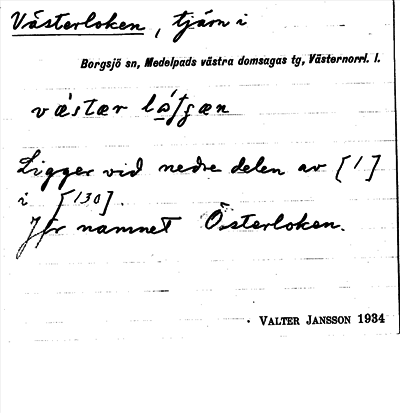 Västerloken, tjärn i
Borgsjö sn, Medelpads västra domsagas tg, Västernorrl. l.
væ´stær
Ligger vid nedre delen av [1]
i [130].
Jfr namnet Österloken.
VALTER JANSSON 1934